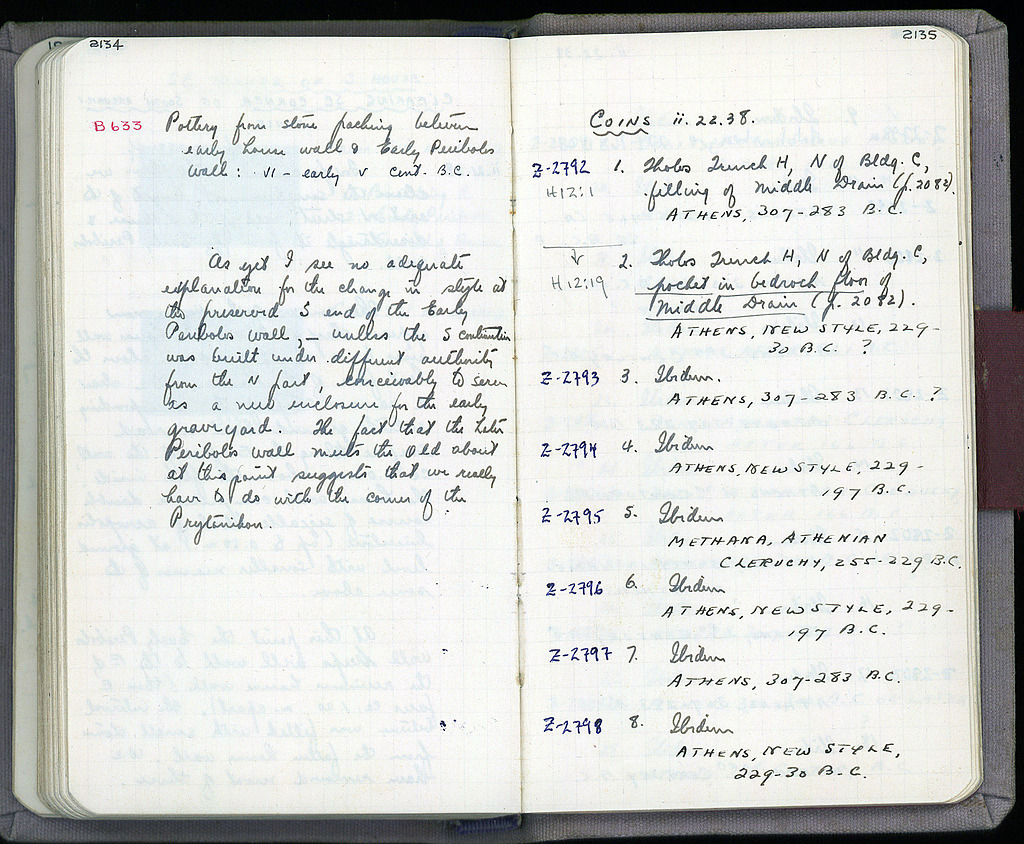 2134
B 633 Pottery from stone packing between
early house wall & Early Peribolos
wall: VI - early V cent. B.C.
As yet I see no adequate
explanation for the change in style at
the preserved S end of the Early
Peribolos wall, — unless the S continuation
was built under different authority
from the N part, conceivably to serve
as a new enclosure for the early
graveyard. The fact that the later
Peribolos wall meets the Old about
at this point suggests that we really
have to do with the corner of the
Prytanikon.
2135
COINS ii.22.38.
Z-2792 1. Tholos Trench H, N of Bldg. C,
H12:1 filling of Middle Drain (p. 2082).
ATHENS, 307-283 B.C.
2. Tholos Trench H, N of Bldg. C,
H12:19 pocket in bedrock floor of
Middle Drain (p. 2082).
ATHENS, NEW STYLE, 229-
30 B.C. ?
Z-2793 3. Ibidem.
ATHENS, 307-283 B.C. ?
Z-2794 4. Ibidem
ATHENS, NEW STYLE, 229-
197 B.C.
Z-2795 5. Ibidem
METHANA, ATHENIAN
CLERUCHY, 255-229 B.C.
Z-2796 6. Ibidem
ATHENS, NEW STYLE, 229-
197 B.C.
Z-2797 7. Ibidem
ATHENS, 307-283 B.C.
Z-2798 8. Ibidem
ATHENS, NEW STYLE,
229-30 B.C.